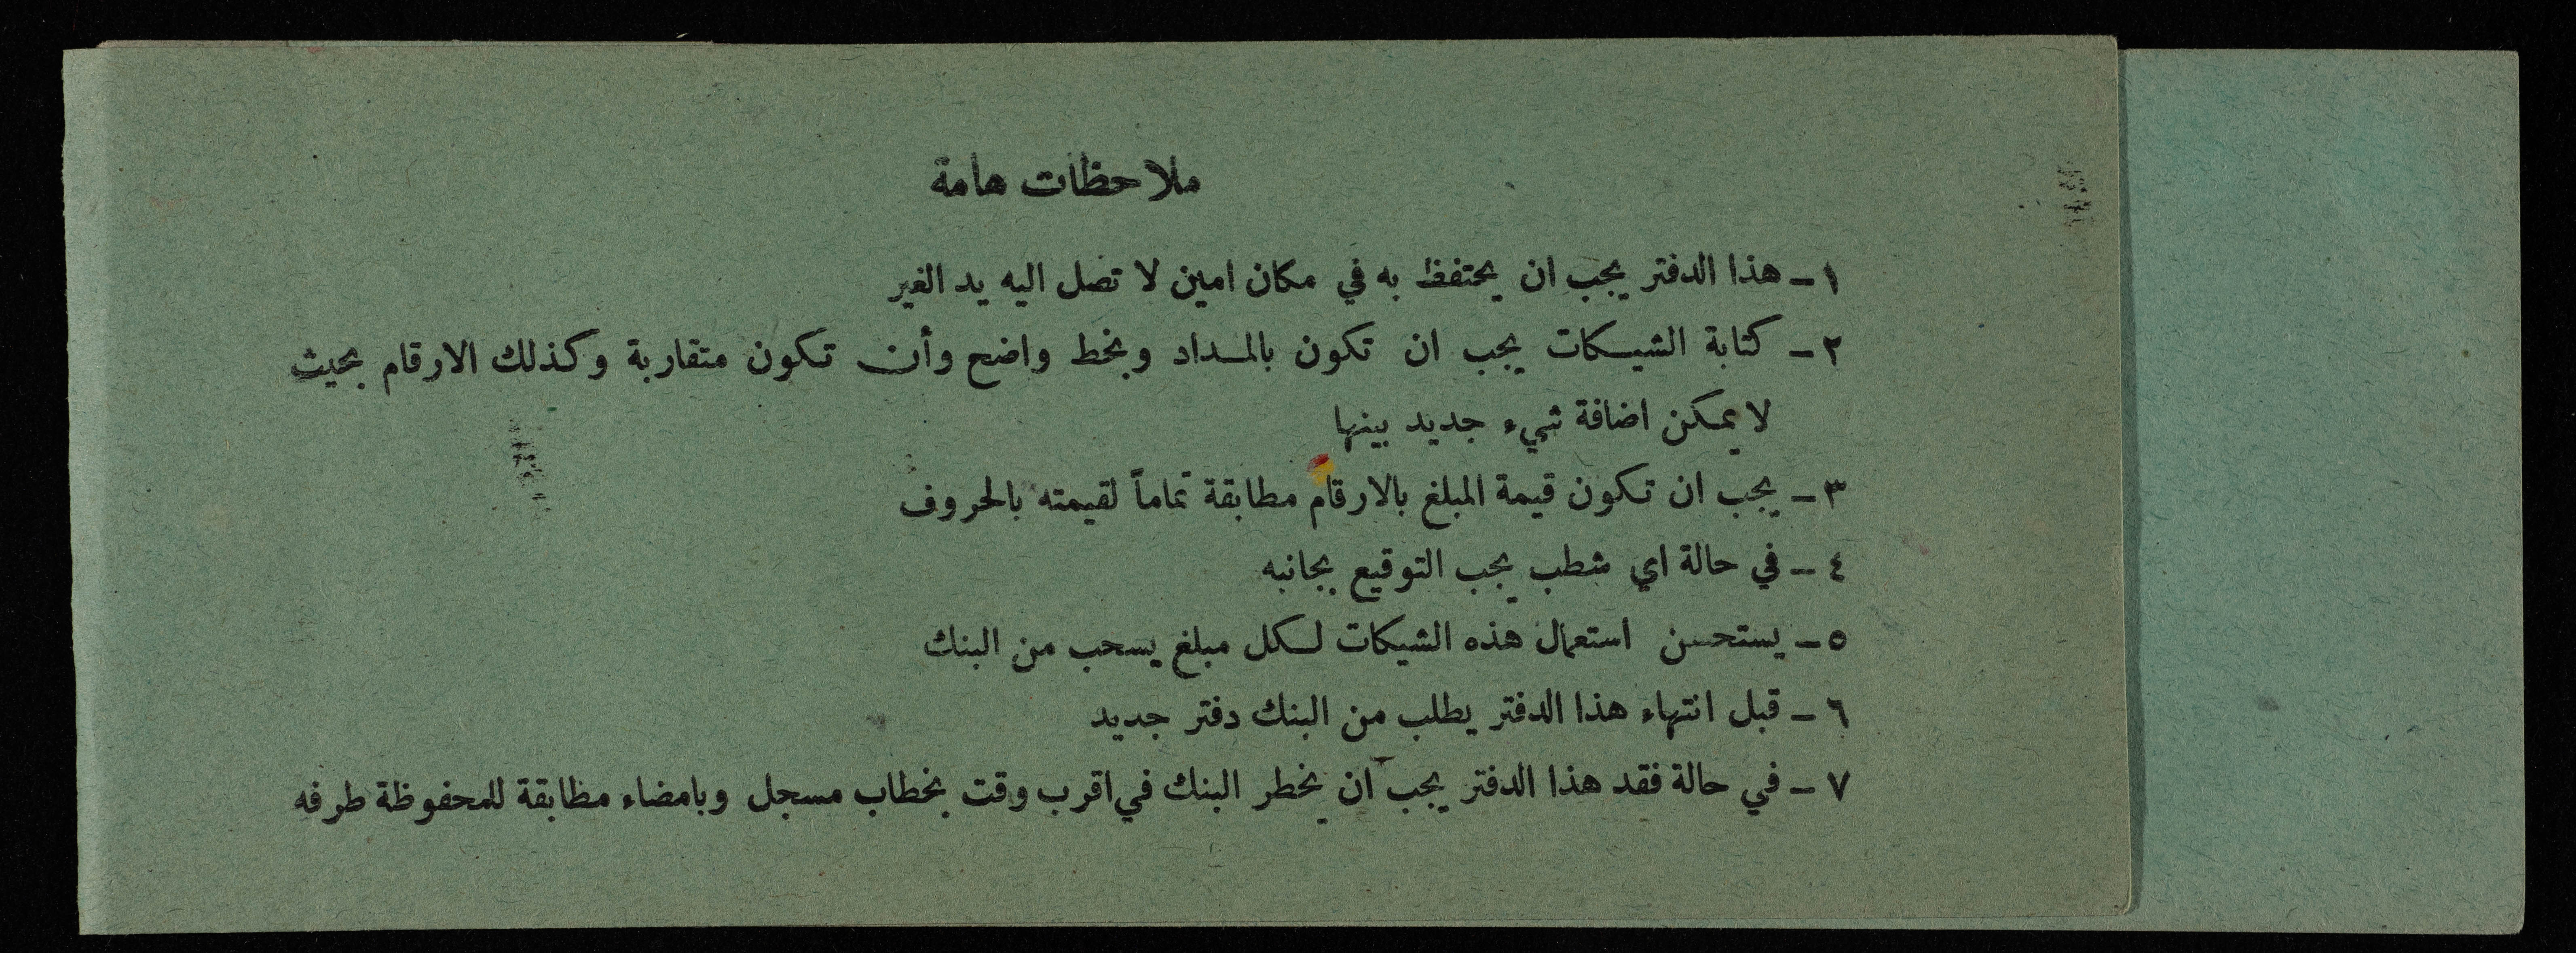 ملاحظات هامة
١ - هذا الدفتر يجب ان يحتفظ به في مكان امين لا تصل اليه يد الغير
٢ - كتابة الشيكات يجب ان تكون بالمداد وبخط واضح وأن تكون متقاربة وكذلك الارقام بحيث
لا يمكن اضافة شيء جديد بينها
٣ - يجب ان تكون قيمة المبلغ بالارقام مطابقة تماماً لقيمته بالحروف
٤ - في حالة اي شطب يجب التوقيع بجانبه
٥ - يستحسن استعمال هذه الشيكات لكل مبلغ يسحب من البنك
٦ - قبل انتهاء هذا الدفتر يطلب من البنك دفتر جديد
٧ - في حالة فقد هذا الدفتر يجب ان يخطر البنك في اقرب وقت بخطاب مسجل وبامضاء مطابقة للمحفوظة طرفه